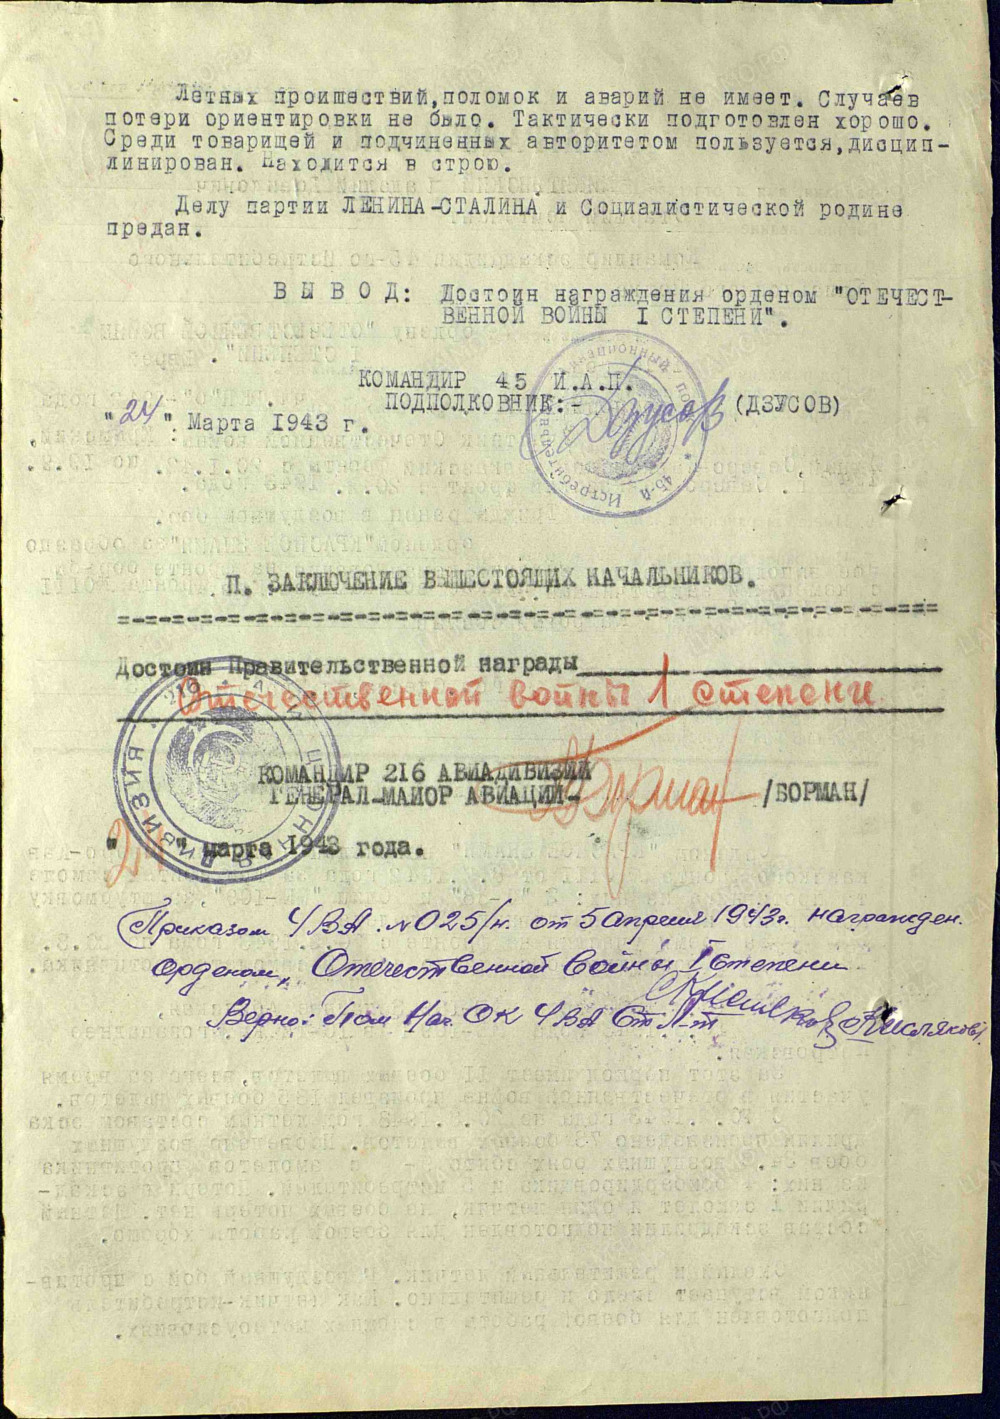 Летных проишествий,поломок и аварий не имеет. Случаев
потери ориентировки не было. Тактически подготовлен хорошо.
Среди товарищей и подчиненных авторитетом пользуется,дисцип-
линирован. Находится в строю.
Делу партии ЛЕНИНА-СТАЛИНА и Социалистической родине
предан.
ВЫВОД: Достоин награждения орденом "ОТЕЧЕСТ-
ВЕННОЙ ВОЙНЫ I СТЕПЕНИ".
КОМАНДИР 45 И.А.П.
ПОДПОЛКОВНИК:- Дзусов (ДЗУСОВ)
"24" Марта 1943 г.
45-й Истребительный авиационный полк
П. ЗАКЛЮЧЕНИЕ ВЫШЕСТОЯЩИХ НАЧАЛЬНИКОВ.
Достоин Правительственной награды
Отечественной войны 1 степени
КОМАНДИР 216 АВИАДИВИЗИИ
ГЕНЕРАЛ-МАИОР АВИАЦИИ- Борман /БОРМАН/
"24" марта 1943 года.
ДИВИЗИЯ
Приказом 4 ВА №025/н. от 5 апреля 1943г. награжден.
орденом „Отечественной войны I степени
Верно: Пом Нач. ОК 4 ВА Ст Л-т Кисляков